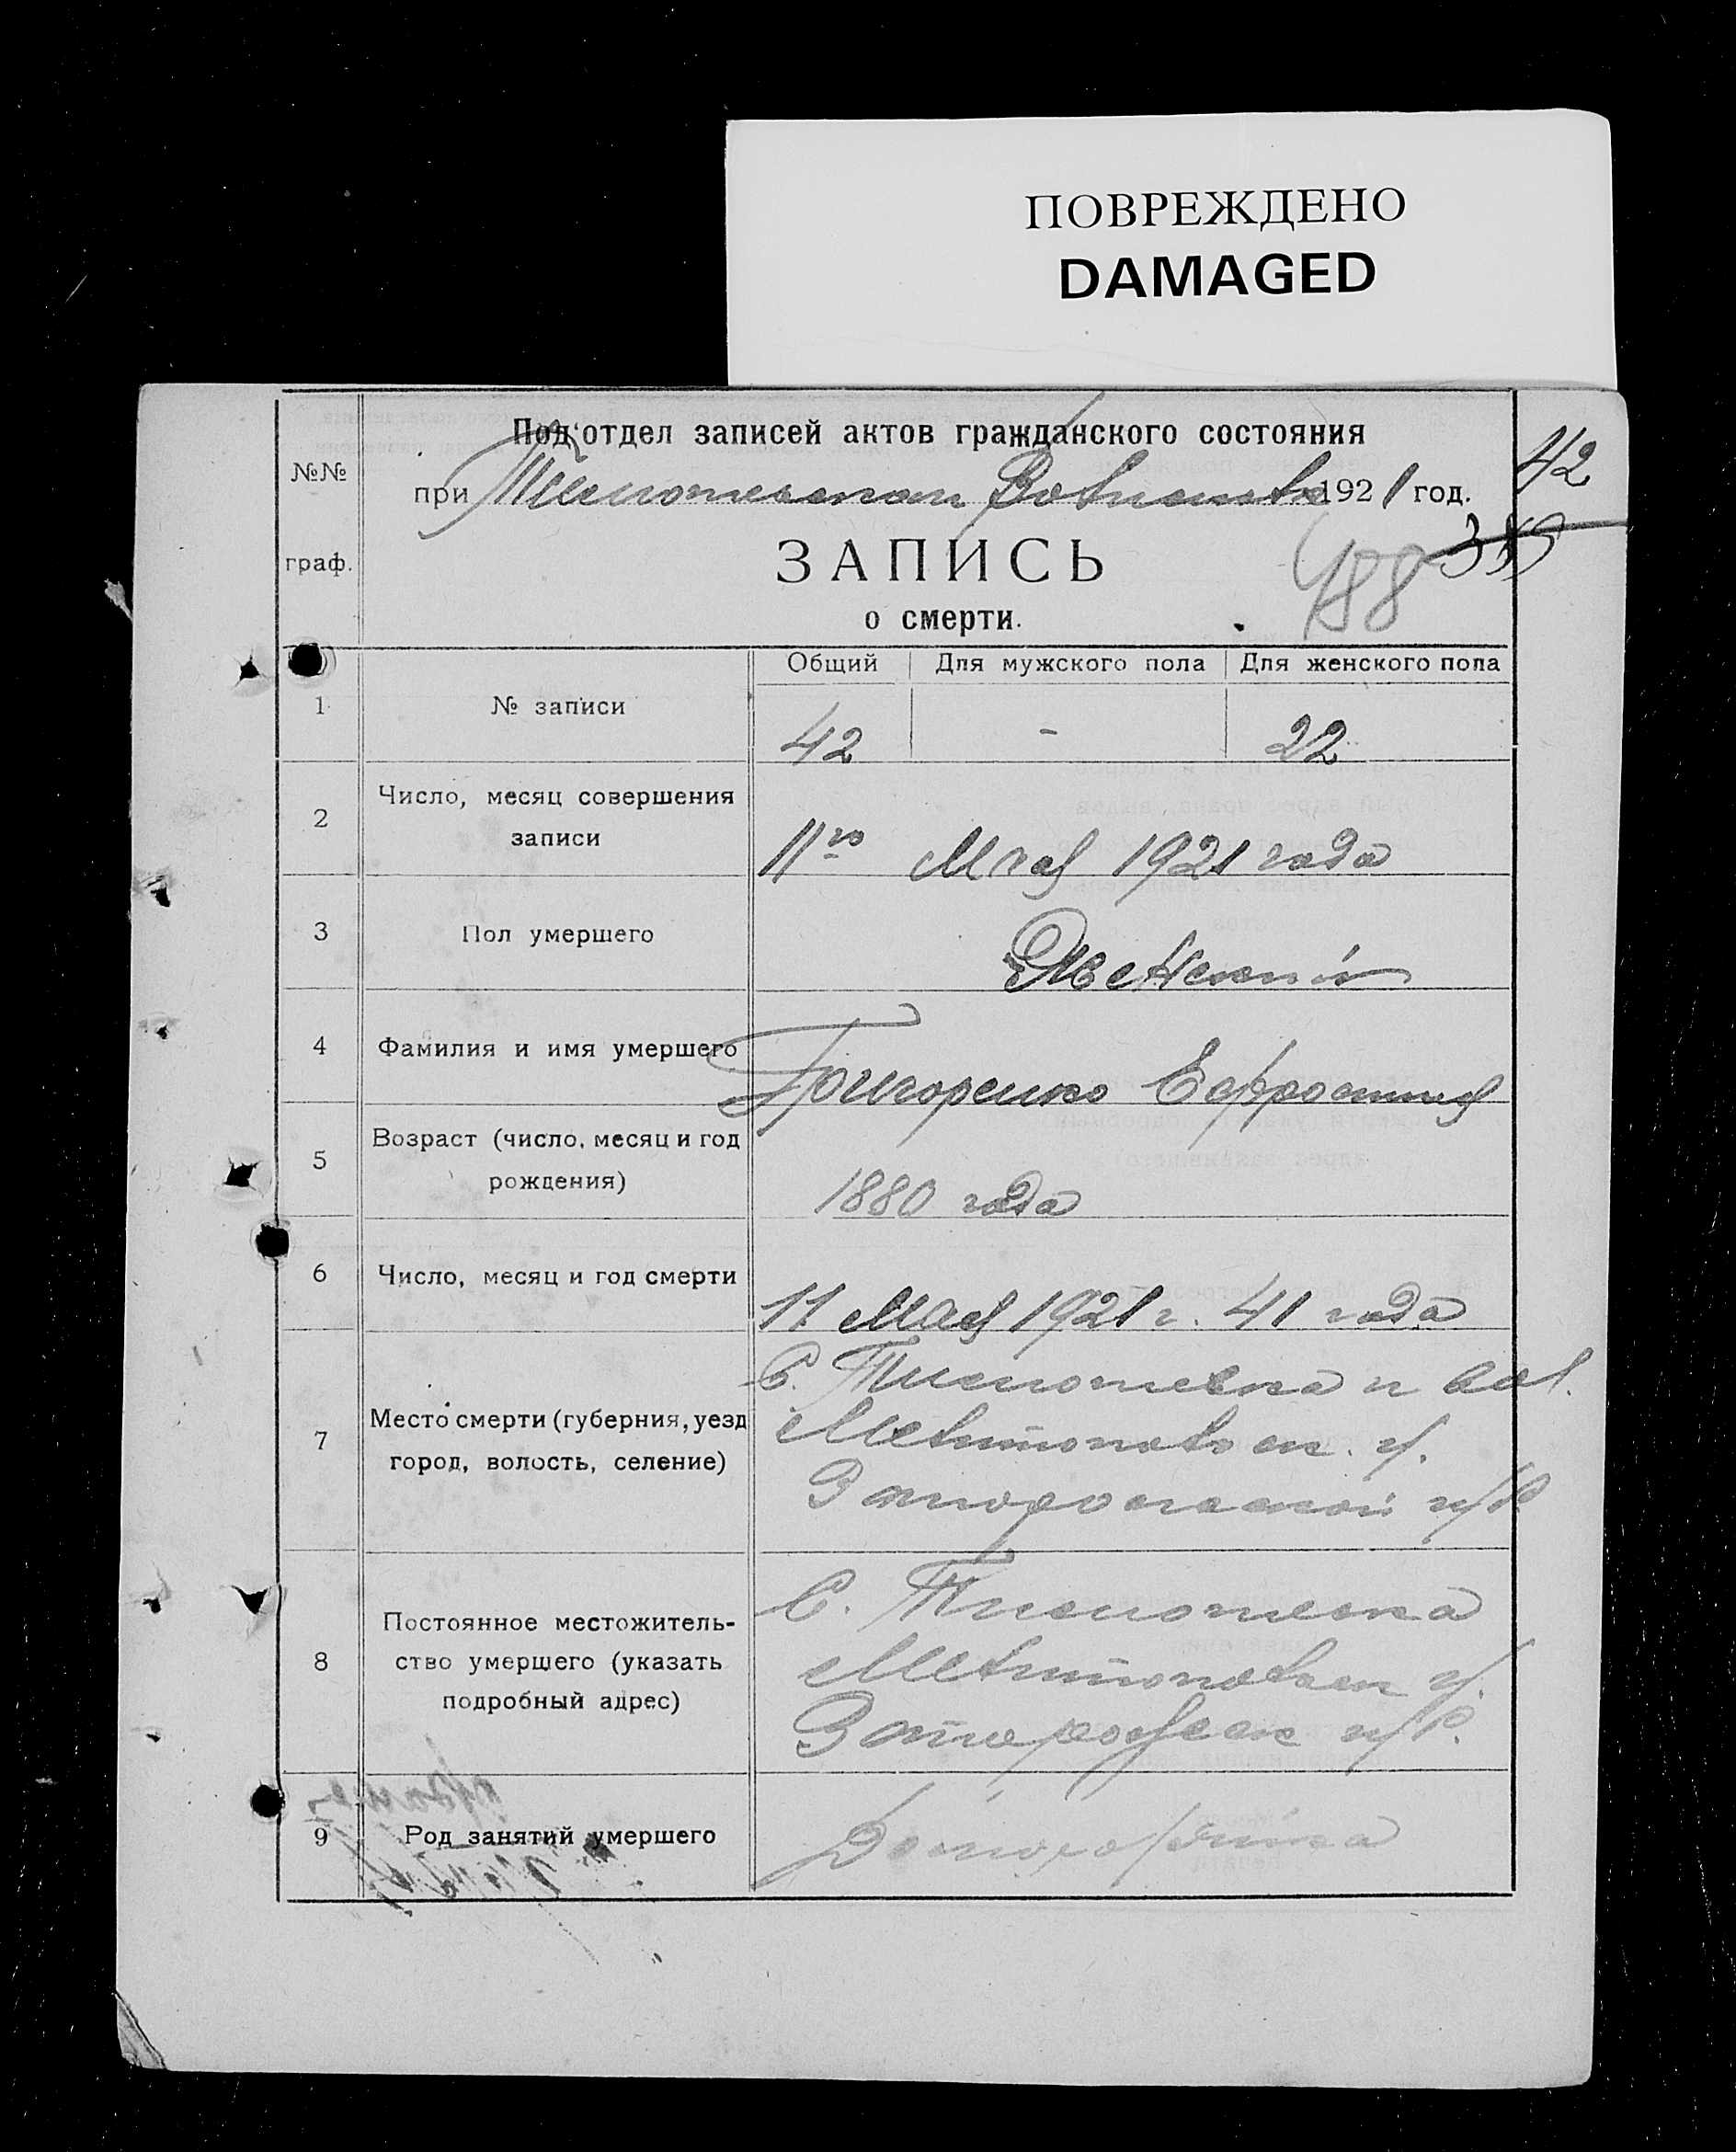 ПОВРЕЖДЕНО
DAMAGED
Под'отдел записей актов гражданского состояния
42
№№ при 1921 год.
граф.
ЗАПИСЬ
488
о смерти.
Общий Для мужского пола Для женского пола
1 № записи 42 - 22
2 Число, месяц совершения записи 11го Мая 1921 года
3 Пол умершего Женский
4 Фамилия и имя умершего Григоренко Ефросиния
5 Возраст (число, месяц и год рождения) 1880 года
6 Число, месяц и год смерти 11 Мая 1921 г. 41 года
7 Место смерти (губерния, уезд город, волость, селение) С. Тимошевка
Мелитопольск. у.
Запорожской г/б
8 Постоянное местожитель-
ство умершего (указать
подробный адрес)
С. Тимошевка
Мелитопольск у.
9 Род занятий умершего